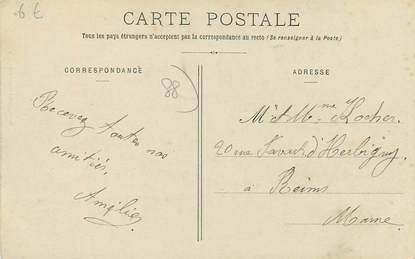 6 €
CARTE POSTALE
Tous les pays étrangers n'acceptent pas la correspondance au recto (Se renseigner à la Poste)
CORRESPONDANCE
ADRESSE
88
Recevez toutes nos
amitiés.
Amélie
Mr & Mme Locher
20 rue d'Herbigny.
à Reims
Marne